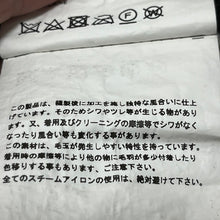 この製品は、縫製後に加工を施し独特な風合いに仕上
げています。そのためシワやツレ等が生じる物があり
ます。又、着用及びクリーニングの摩擦等でシワがなく
なったり風合い等も変化する事があります。
この素材は、毛玉が発生しやすい特性を持っています。
着用時の摩擦等により他の物に毛羽が多少付着したり
色移りする事もあります、ご注意下さい。
全てのスチームアイロンの使用は、絶対避けて下さい。